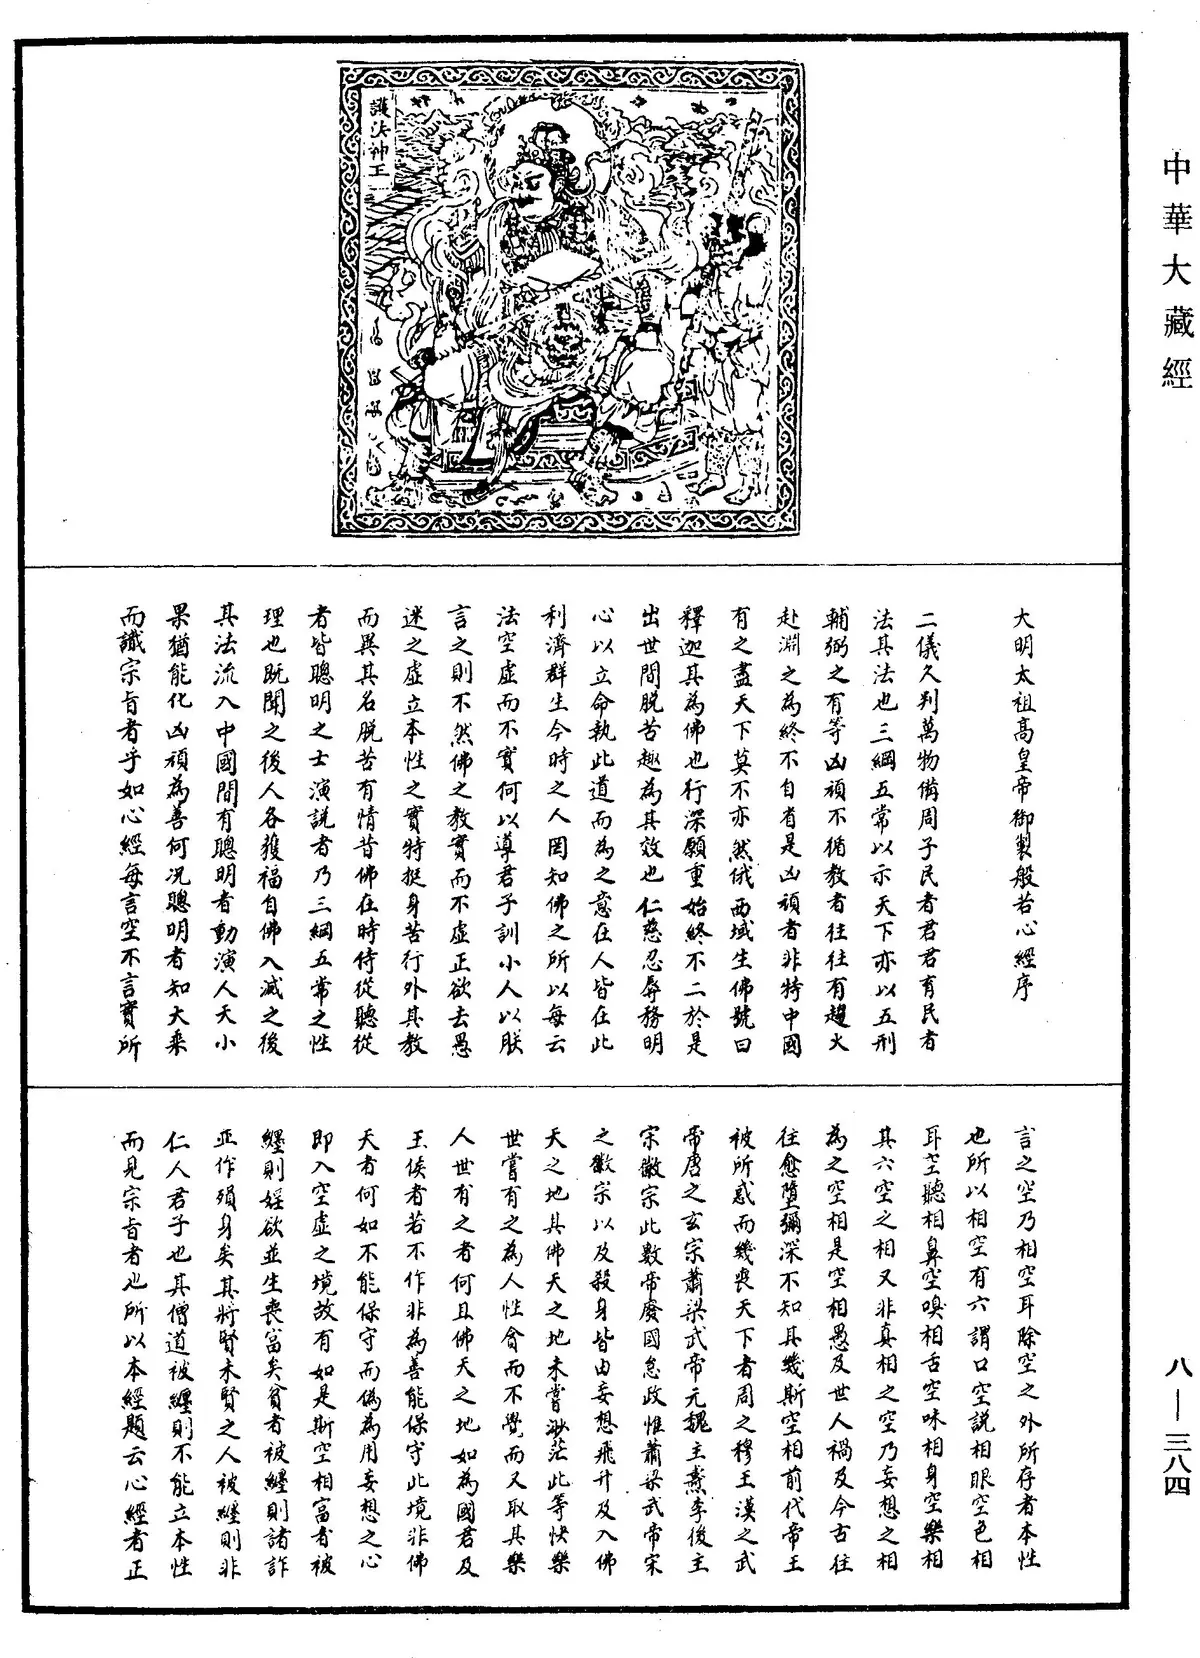 中華大藏經
護法神王
大明太祖高皇帝御製般若心經序
二儀久判萬物備周子民者君君育民者
法其法也三綱五常以示天下亦以五刑
輔弼之有等凶頑不循教者往往有趨火
赴淵之為終不自省是凶頑者非特中國
有之盡天下莫不亦然俄西域生佛號曰
釋迦其為佛也行深願重始終不二於是
出世間脫苦趣為其效也仁慈忍辱務明
心以立命執此道而為之意在人皆在此
利濟群生今時之人罔知佛之所以每云
法空虛而不實何以導君子訓小人以朕
言之則不然佛之教實而不虛正欲去愚
迷之虛立本性之實特挺身苦行外其教
而異其名脫苦有情昔佛在時侍從聽從
者皆聰明之士演說者乃三綱五常之性
理也既聞之後人各獲福自佛入滅之後
其法流入中國間有聰明者動演人天小
果猶能化凶頑為善何況聰明者知大乘
而識宗旨者乎如心經每言空不言實所
言之空乃相空耳除空之外所存者本性
也所以相空有六謂口空說相眼空色相
耳空聽相鼻空嗅相舌空味相身空樂相
其六空之相又非真相之空乃妄想之相
為之空相是空相愚及世人禍及今古往
往愈墮彌深不知其幾斯空相前代帝王
被所惑而幾喪天下者周之穆王漢之武
帝唐之玄宗蕭梁武帝元魏主燾李後主
宋徽宗此數帝廢國怠政惟蕭梁武帝宋
之徽宗以及殺身皆由妄想飛升及入佛
天之地其佛天之地未嘗渺茫此等快樂
世嘗有之為人性貪而不覺而又取其樂
人世有之者何且佛天之地如為國君及
王侯者若不作非為善能保守此境非佛
天者何如不能保守而偽為用妄想之心
即入空虛之境故有如是斯空相富者被
纏則婬欲並生喪富矣貧者被纏則諸詐
並作殞身矣其將賢未賢之人被纏則非
仁人君子也其僧道被纏則不能立本性
而見宗旨者也所以本經題云心經者正
八—三八四